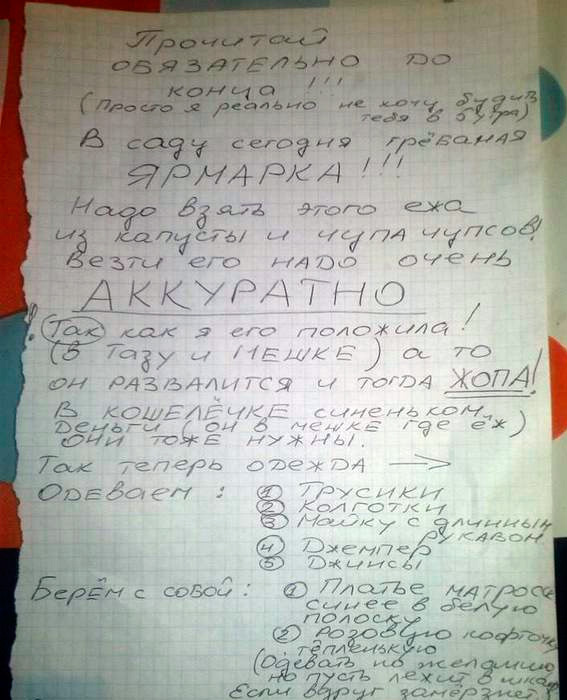 Прочитай
ОБЯЗАТЕЛЬНО ДО
КОНЦА !!!
(Просто я реально не хочу будить
тебя в 6 утра)
В саду сегодня грёбаная
ЯРМАРКА!!!
Надо взять этого ежа
из капусты и чупа чупсов!
Везти его надо очень
АККУРАТНО
! Так как я его положила!
(В Тазу и МЕШКЕ) а то
он РАЗВАЛИТСЯ и тогда ЖОПА!
В КОШЕЛЁЧКЕ синеньком
Деньги (он в мешке где ёж)
они тоже нужны.
Так теперь одежда →
Одеваем: ① Трусики
② Колготки
③ Майку с длинным
рукавом
④ Джемпер
⑤ Джинсы
Берём с собой: ① Платье матроса
синее в белую
полоску
② Розовую кофточку
тёпленькую
(Одевать по желанию,
но пусть лежит в шкафу
Если вдруг замёрзнет